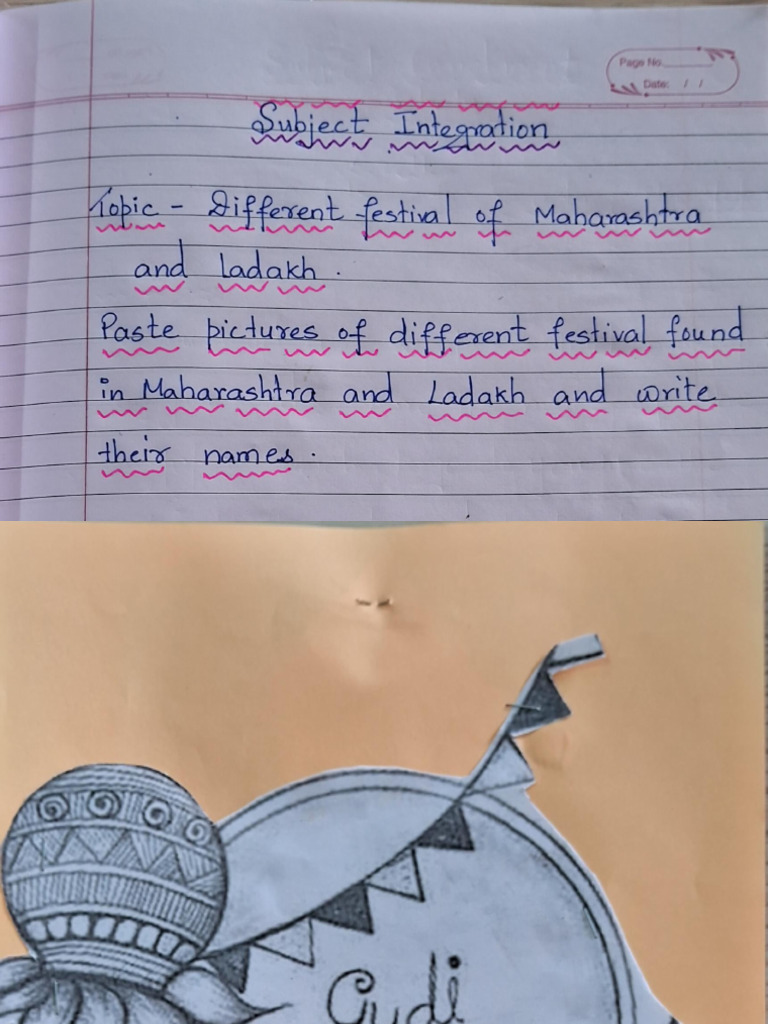 Page No.
Date: / /
Subject Integration
Topic - Different festival of Maharashtra
and Ladakh.
Paste pictures of different festival found
in Maharashtra and Ladakh and write
their names.
Gudi